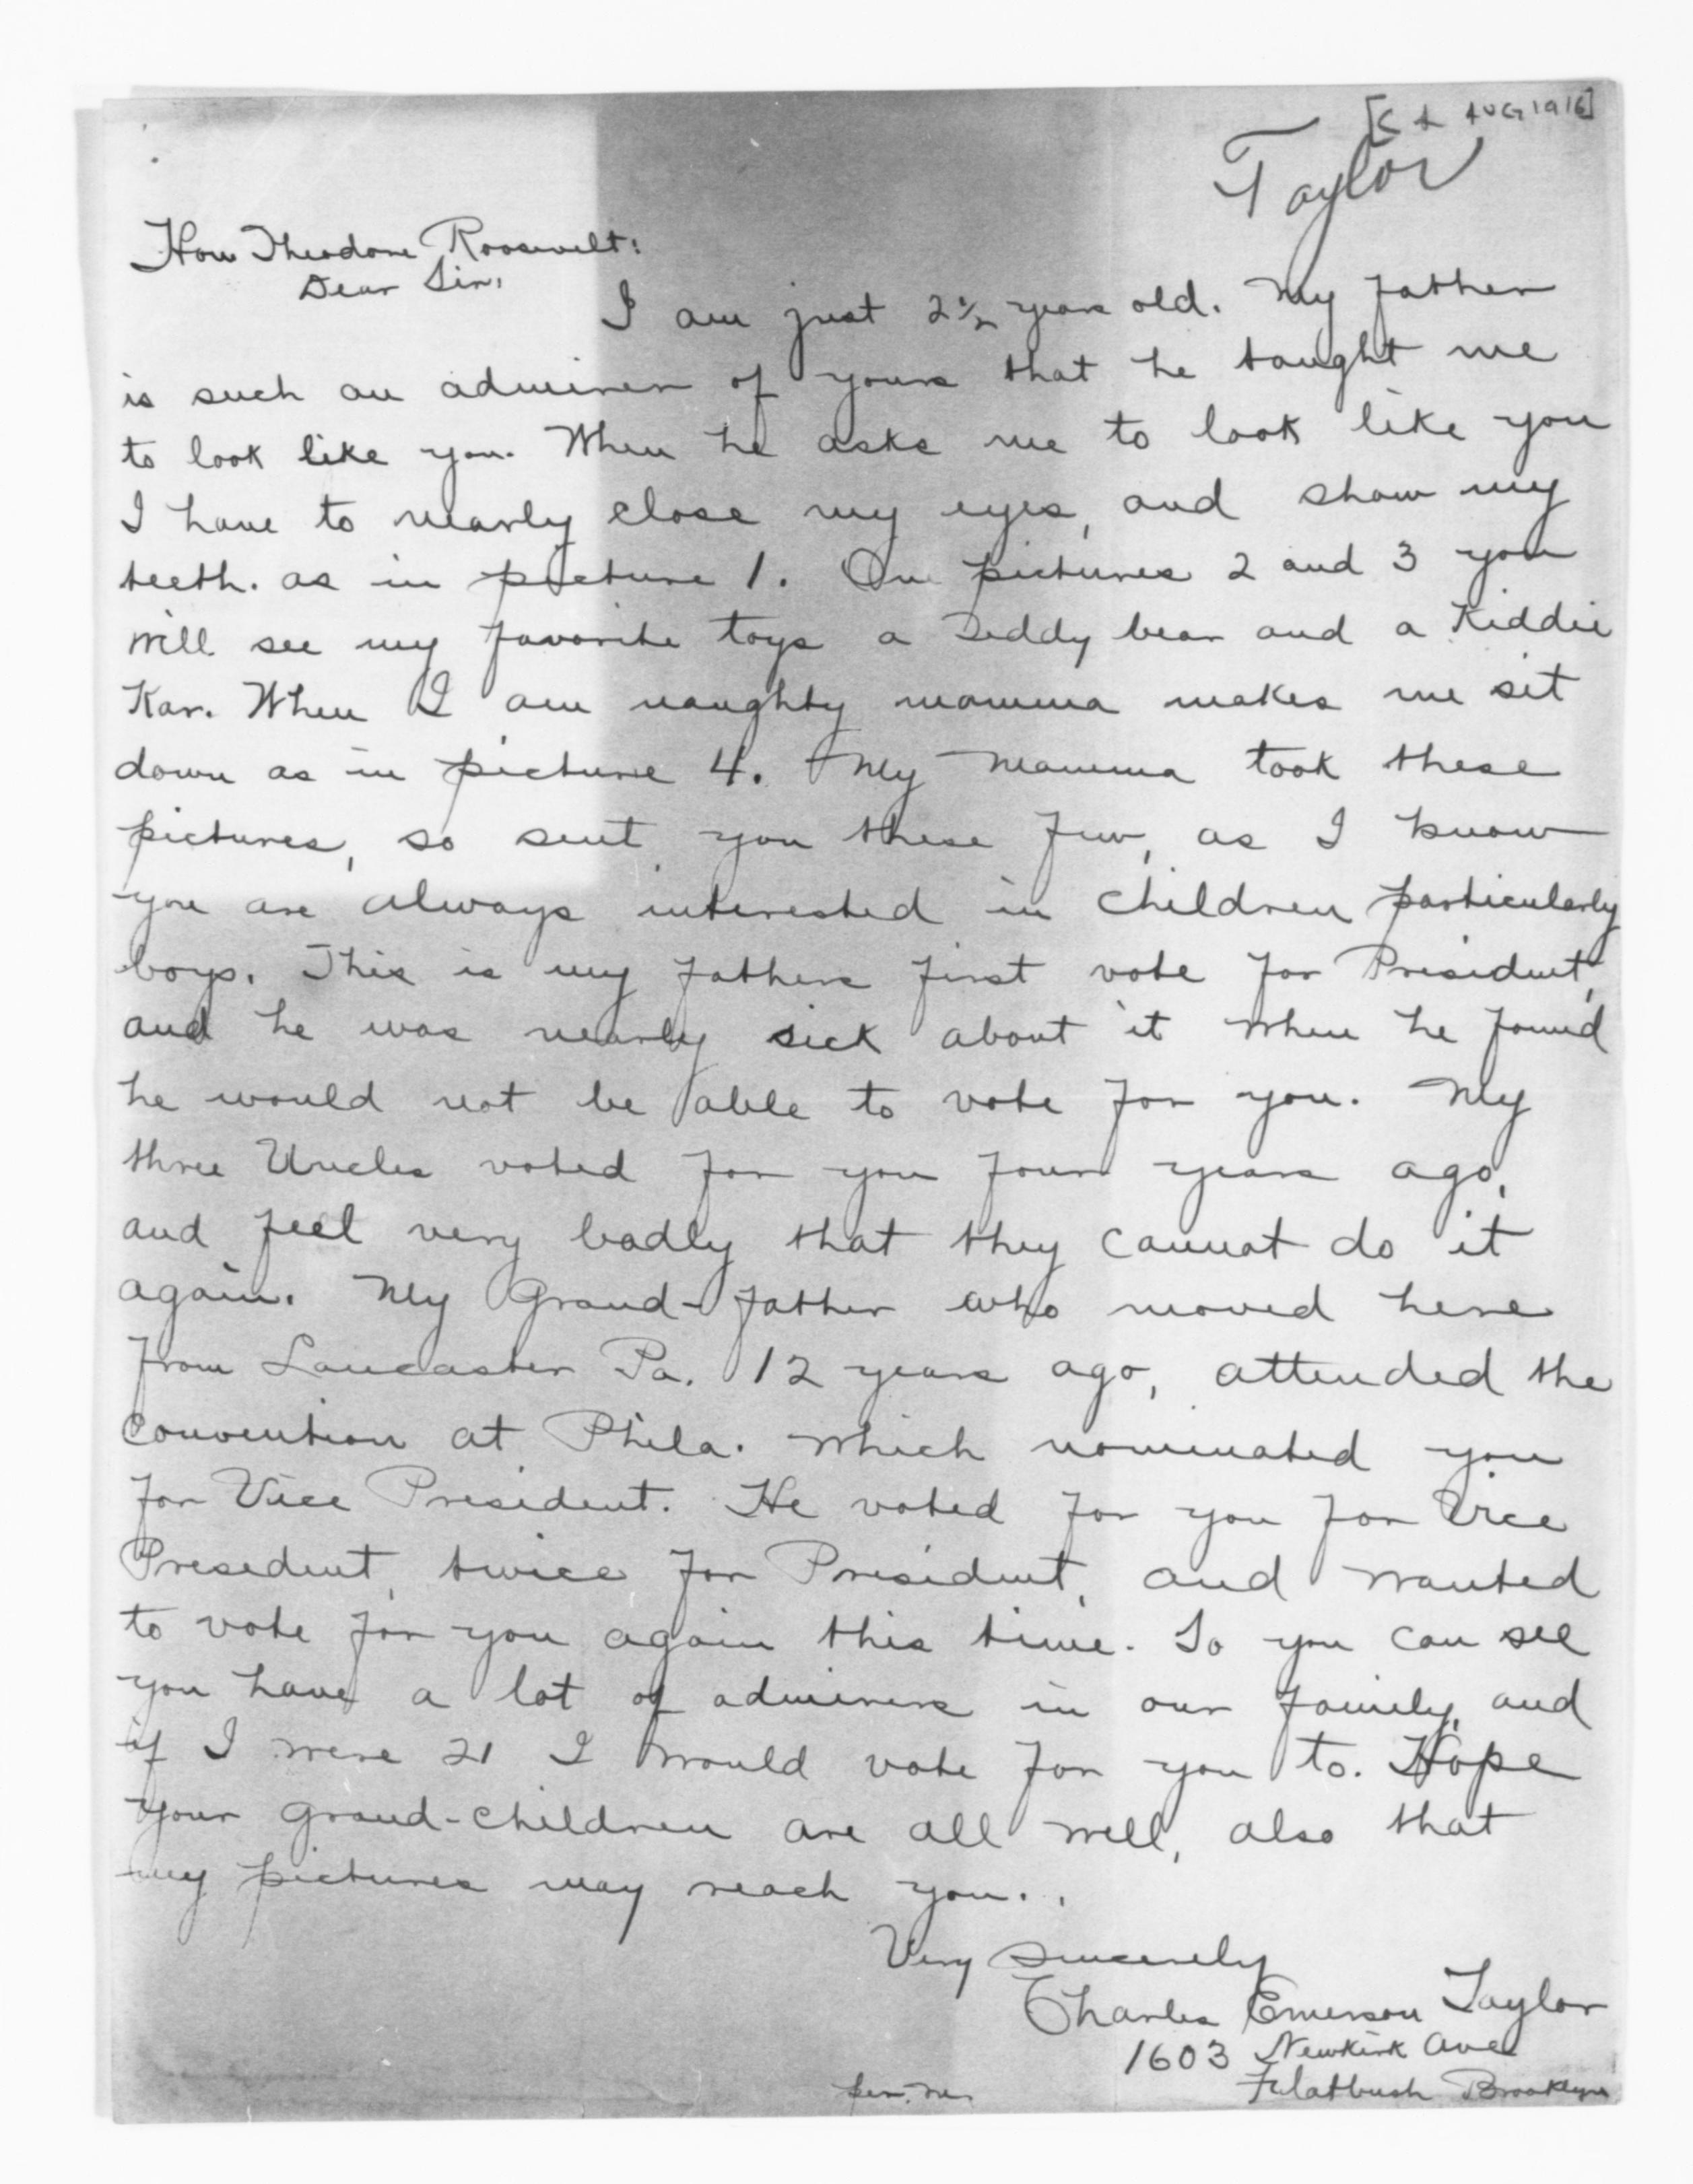 [C A AUG 1916]
Taylor
Hon Theodore Roosevelt:
Dear Sir:
I am just 2 1/2 years old. My father
is such an admirer of yours that he taught me
to look like you. When he asks me to look like you
I have to nearly close my eyes, and show my
teeth. as in picture 1. On pictures 2 and 3 you
will see my favorite toys a Teddy bear and a Kiddie
Kar. When I am naughty mamma makes me sit
down as in picture 4. My Mamma took these
pictures, so sent you these few, as I know
you are always interested in children particularly
boys. This is my fathers first vote for President,
and he was nearly sick about it when he found
he would not be able to vote for you. My
three Uncles voted for you four years ago,
and feel very badly that they cannot do it
again. My Grand-father who moved here
from Lancaster Pa. 12 years ago, attended the
Convention at Phila. which nominated you
for Vice President. He voted for you for Vice
Presedent, twice for President, and wanted
to vote for you again this time. So you can see
you have a lot of admirers in our family, and
if I were 21 I would vote for you to. Hope
your grand-children are all well, also that
my pictures may reach you..
Very sincerely
Charles Emerson Taylor
1603 Newkirk Ave
Flatbush Brooklyn
per.